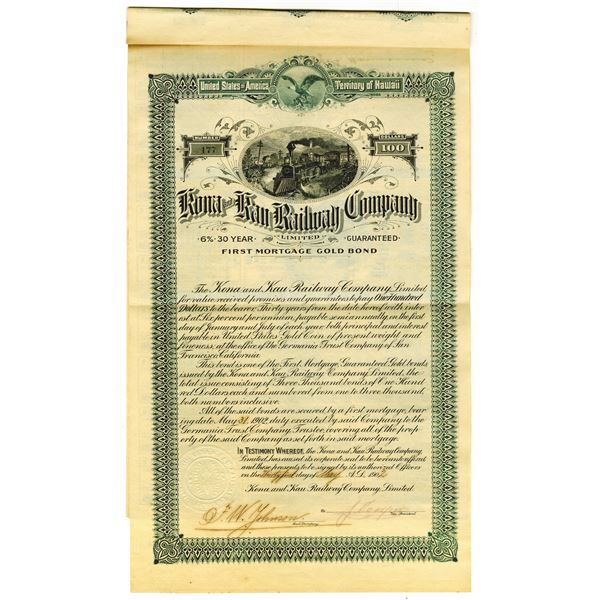 United States of America Territory of Hawaii
NUMBER DOLLARS
177 100
Kona and Kau Railway Company
LIMITED
6% 30 YEAR GUARANTEED
FIRST MORTGAGE GOLD BOND
The Kona and Kau Railway Company, Limited
for value received promises and guarantees to pay One Hundred
Dollars to the bearer Thirty years from the date hereof with inter-
est at Six per cent per annum, payable semi annually, in the first
day of January and July of each year both principal and interest
payable in United States Gold Coin of present weight and
fineness, at the office of the Germania Trust Company of San
Francisco California.
This bond is one of the First Mortgage, Guaranteed, Gold bonds
issued by the Kona and Kau Railway Company Limited, the
total issue consisting of Three Thousand bonds of One Hund
red Dollars each and numbered from one to three thousand
both numbers inclusive.
All of the said bonds are secured by a first mortgage, bear
ing date May 31, 1902, duly executed by said Company to the
Germania Trust Company, Trustee covering all of the prop
erty of the said Company as set forth in said mortgage.
IN TESTIMONY WHEREOF, the Kona and Kau Railway Company,
Limited, has caused its corporate seal to be hereunto affixed
and these presents to be signed by its authorized Officers
on the day of May A.D. 1902
Kona and Kau Railway Company, Limited.
F. W. Johnson
Vice President